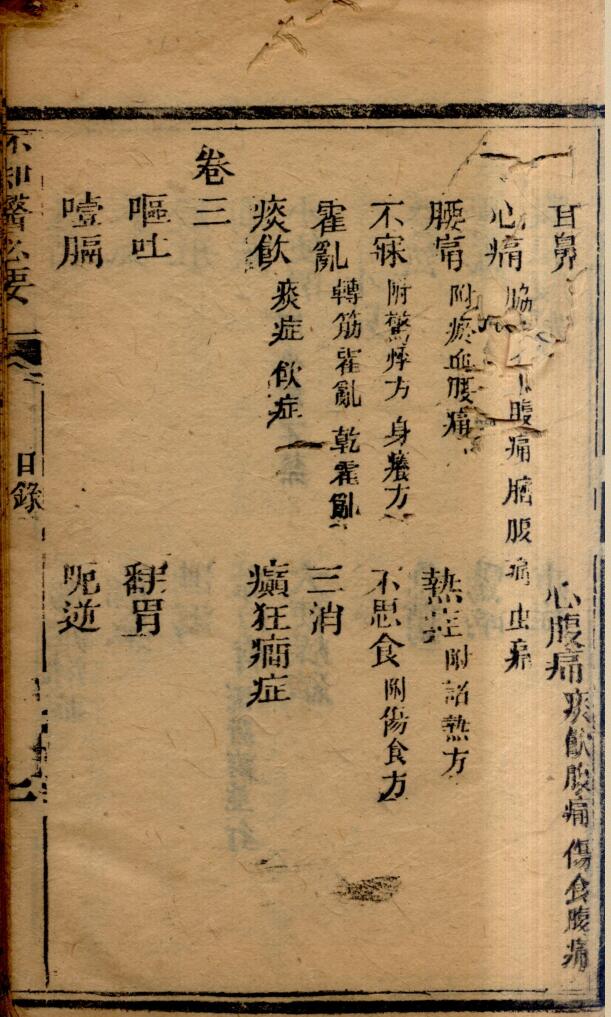 耳鼻 心腹痛 痰飲腹痛 傷食腹痛
心痛 腹痛 腹痛 虫痛
腰痛 附瘀血腰痛 熱症 附諸熱方
不寐 附驚悸方 身癢方 不思食 附傷食方
霍亂 轉筋霍亂 乾霍亂 三消
痰飲 痰症 飲症 癲狂癇症
卷三
嘔吐 翻胃
噎膈 呃逆
不知醫必要 目錄